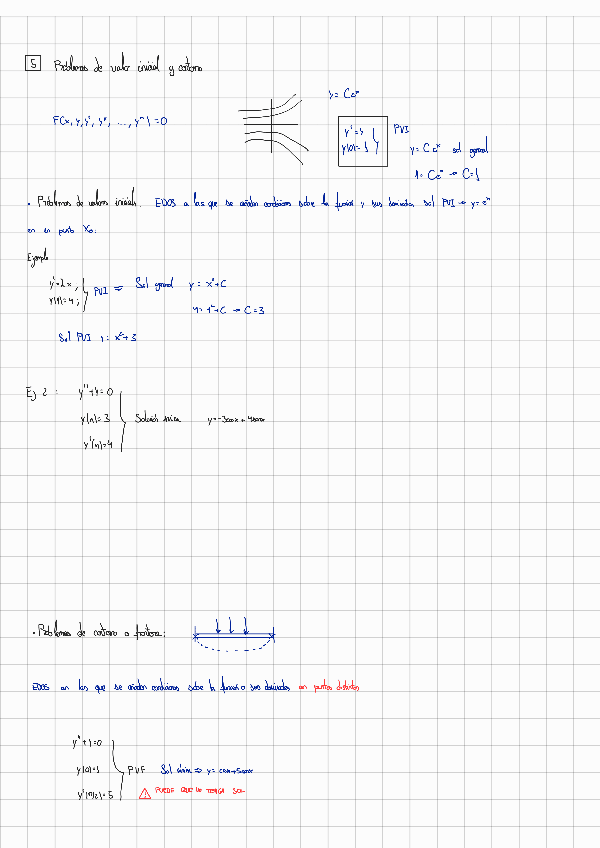 5 Problemas de valor inicial y contorno
y = Ceˣ
F(x, y, y', y'', ..., yⁿ) = 0
y' = y
y(0) = 1
PVI
y = Ceˣ sol general
1 = Ce⁰ → C = 1
· Problemas de valores iniciales. EDOS a las que se añaden condiciones sobre la función y sus derivadas Sol PVI → y = eˣ
en un punto X₀.
Ejemplo
y' = 2x ;
y(1) = 4 ;
PVI ⇒ Sol general y = x² + C
4 = 1² + C → C = 3
Sol PVI y = x² + 3
Ej 2 : y'' + y = 0
y(π) = 3
y'(π) = 4
Solución única
· Problemas de contorno o frontera:
EDOS en las que se añaden condiciones sobre la función o sus derivadas en puntos distintos
y(0) = 1
PVF Sol única ⇒ y = cosx + 5senx
y(π/2) = 5
⚠ PUEDE QUE NO TENGA SOL